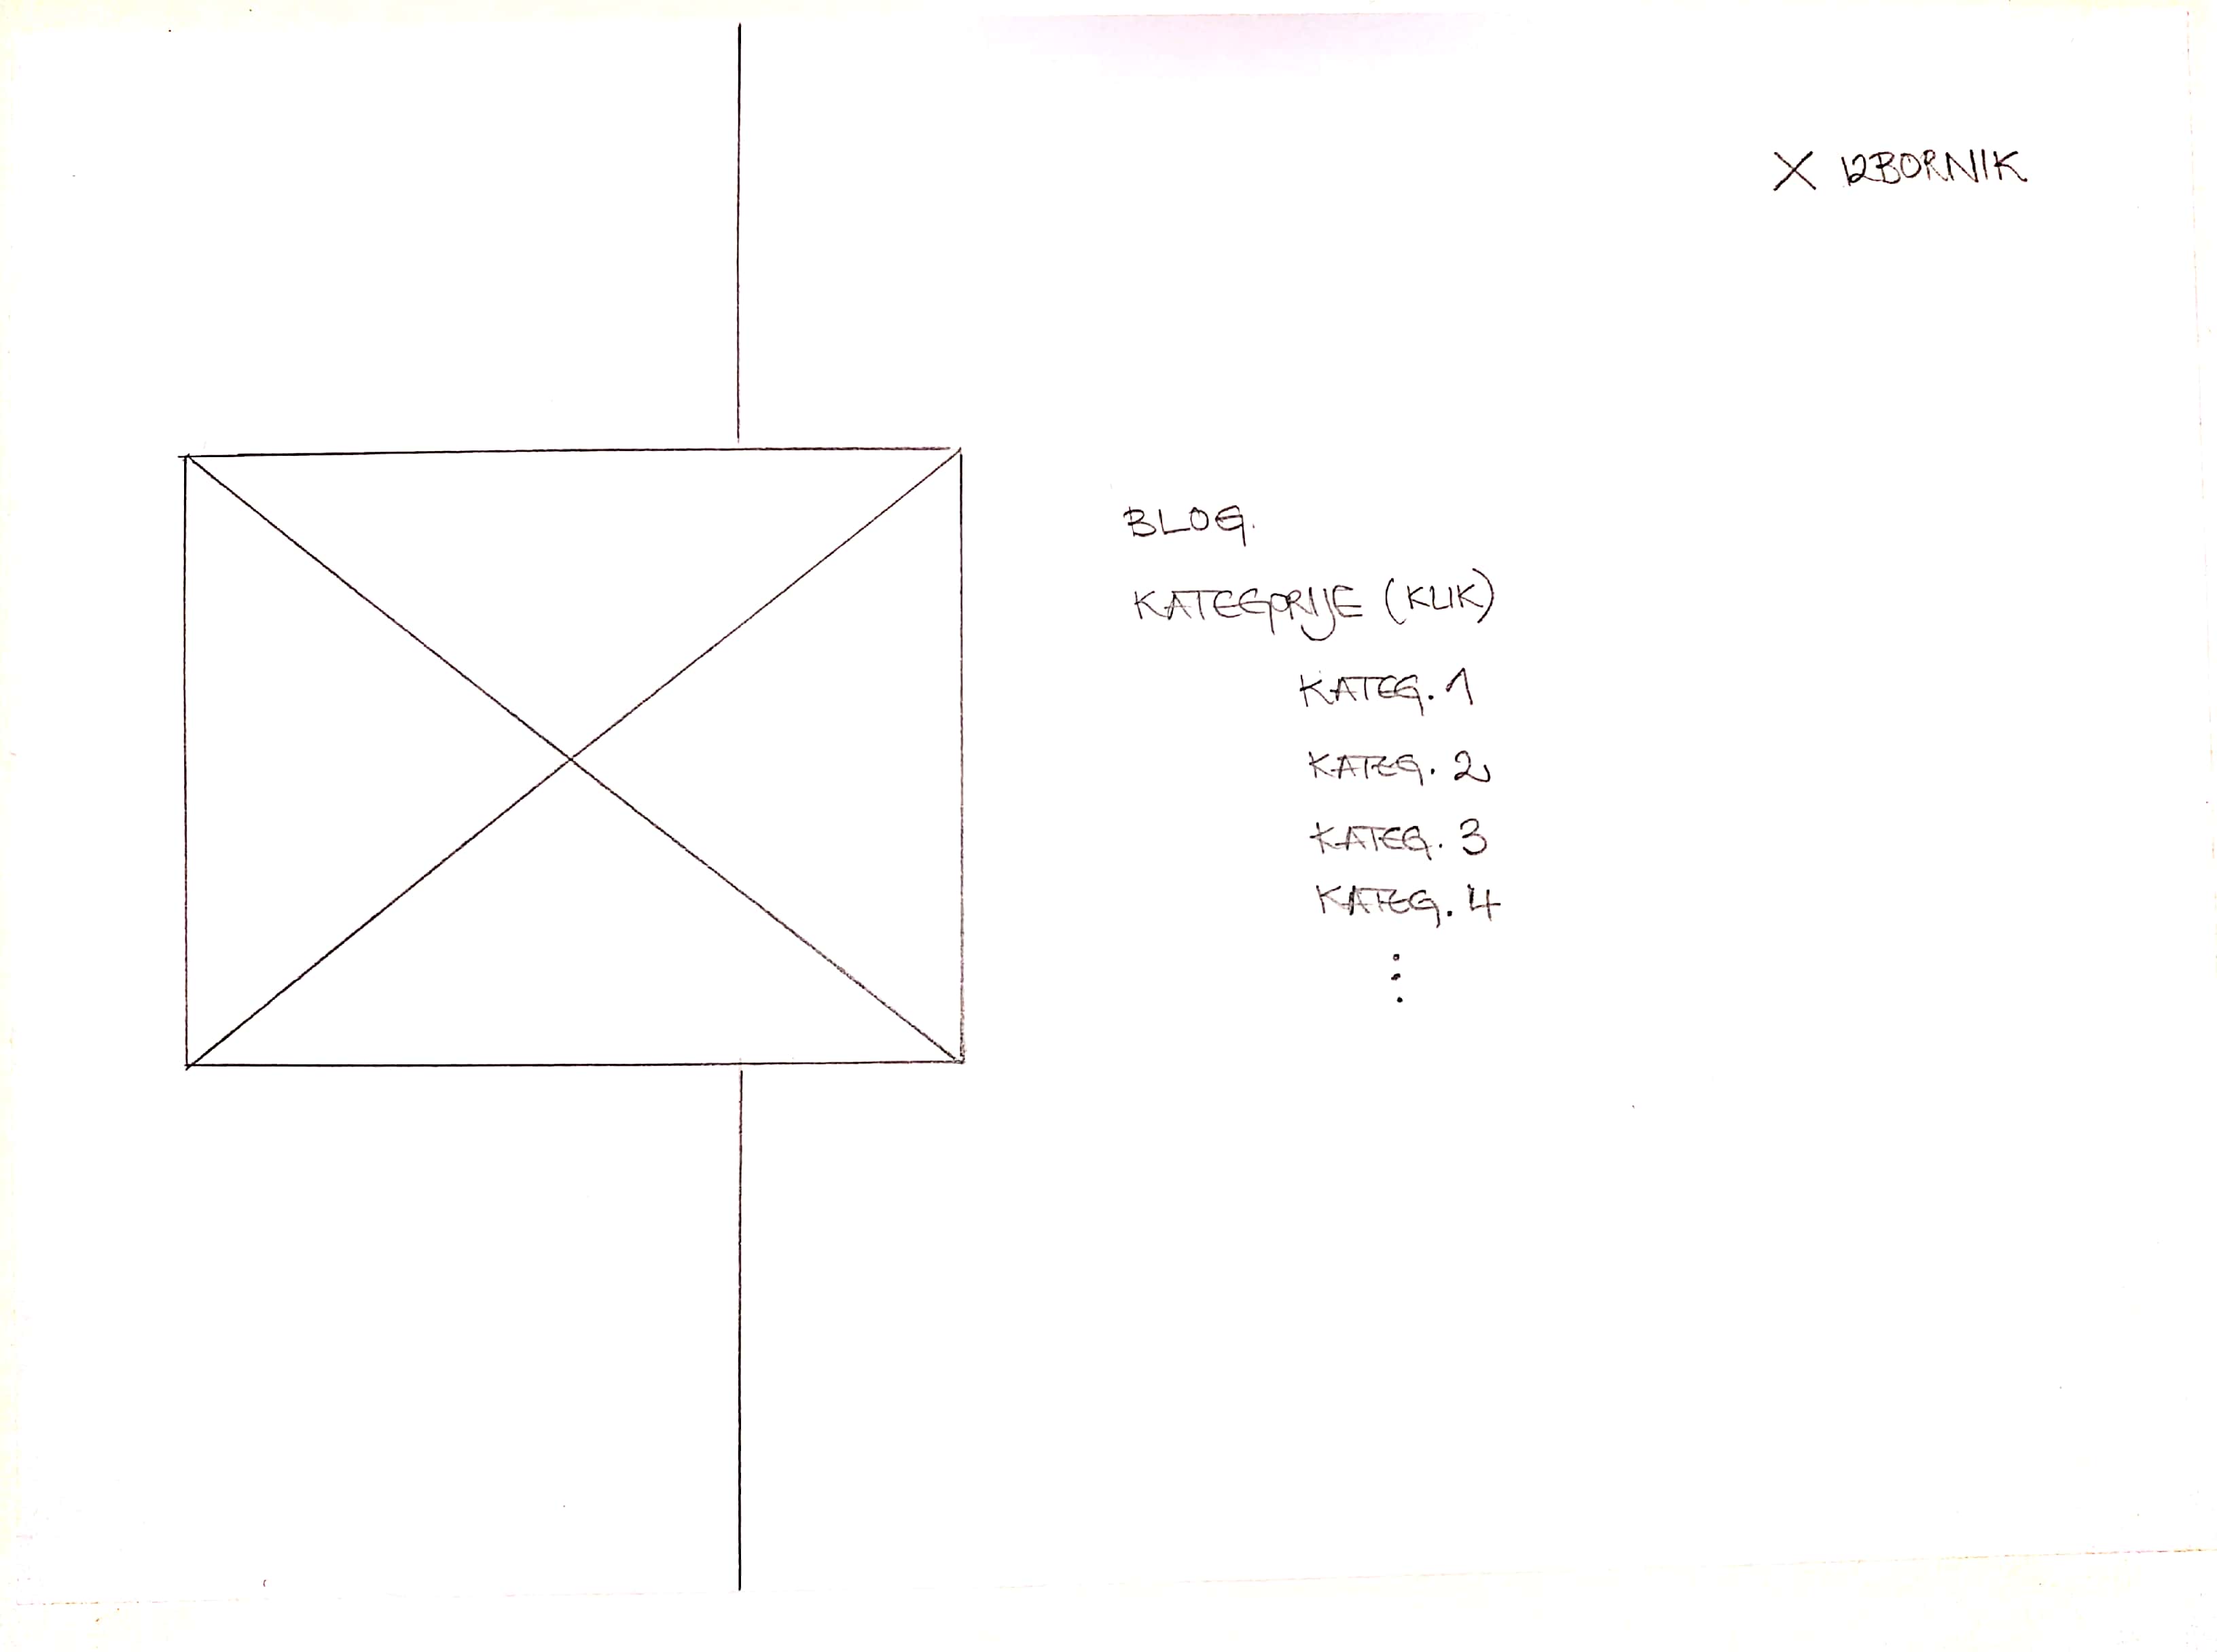 X IZBORNIK
BLOG.
KATEGORIJE (KLIK)
KATEG. 1
KATEG. 2
KATEG. 3
KATEG. 4
⋮